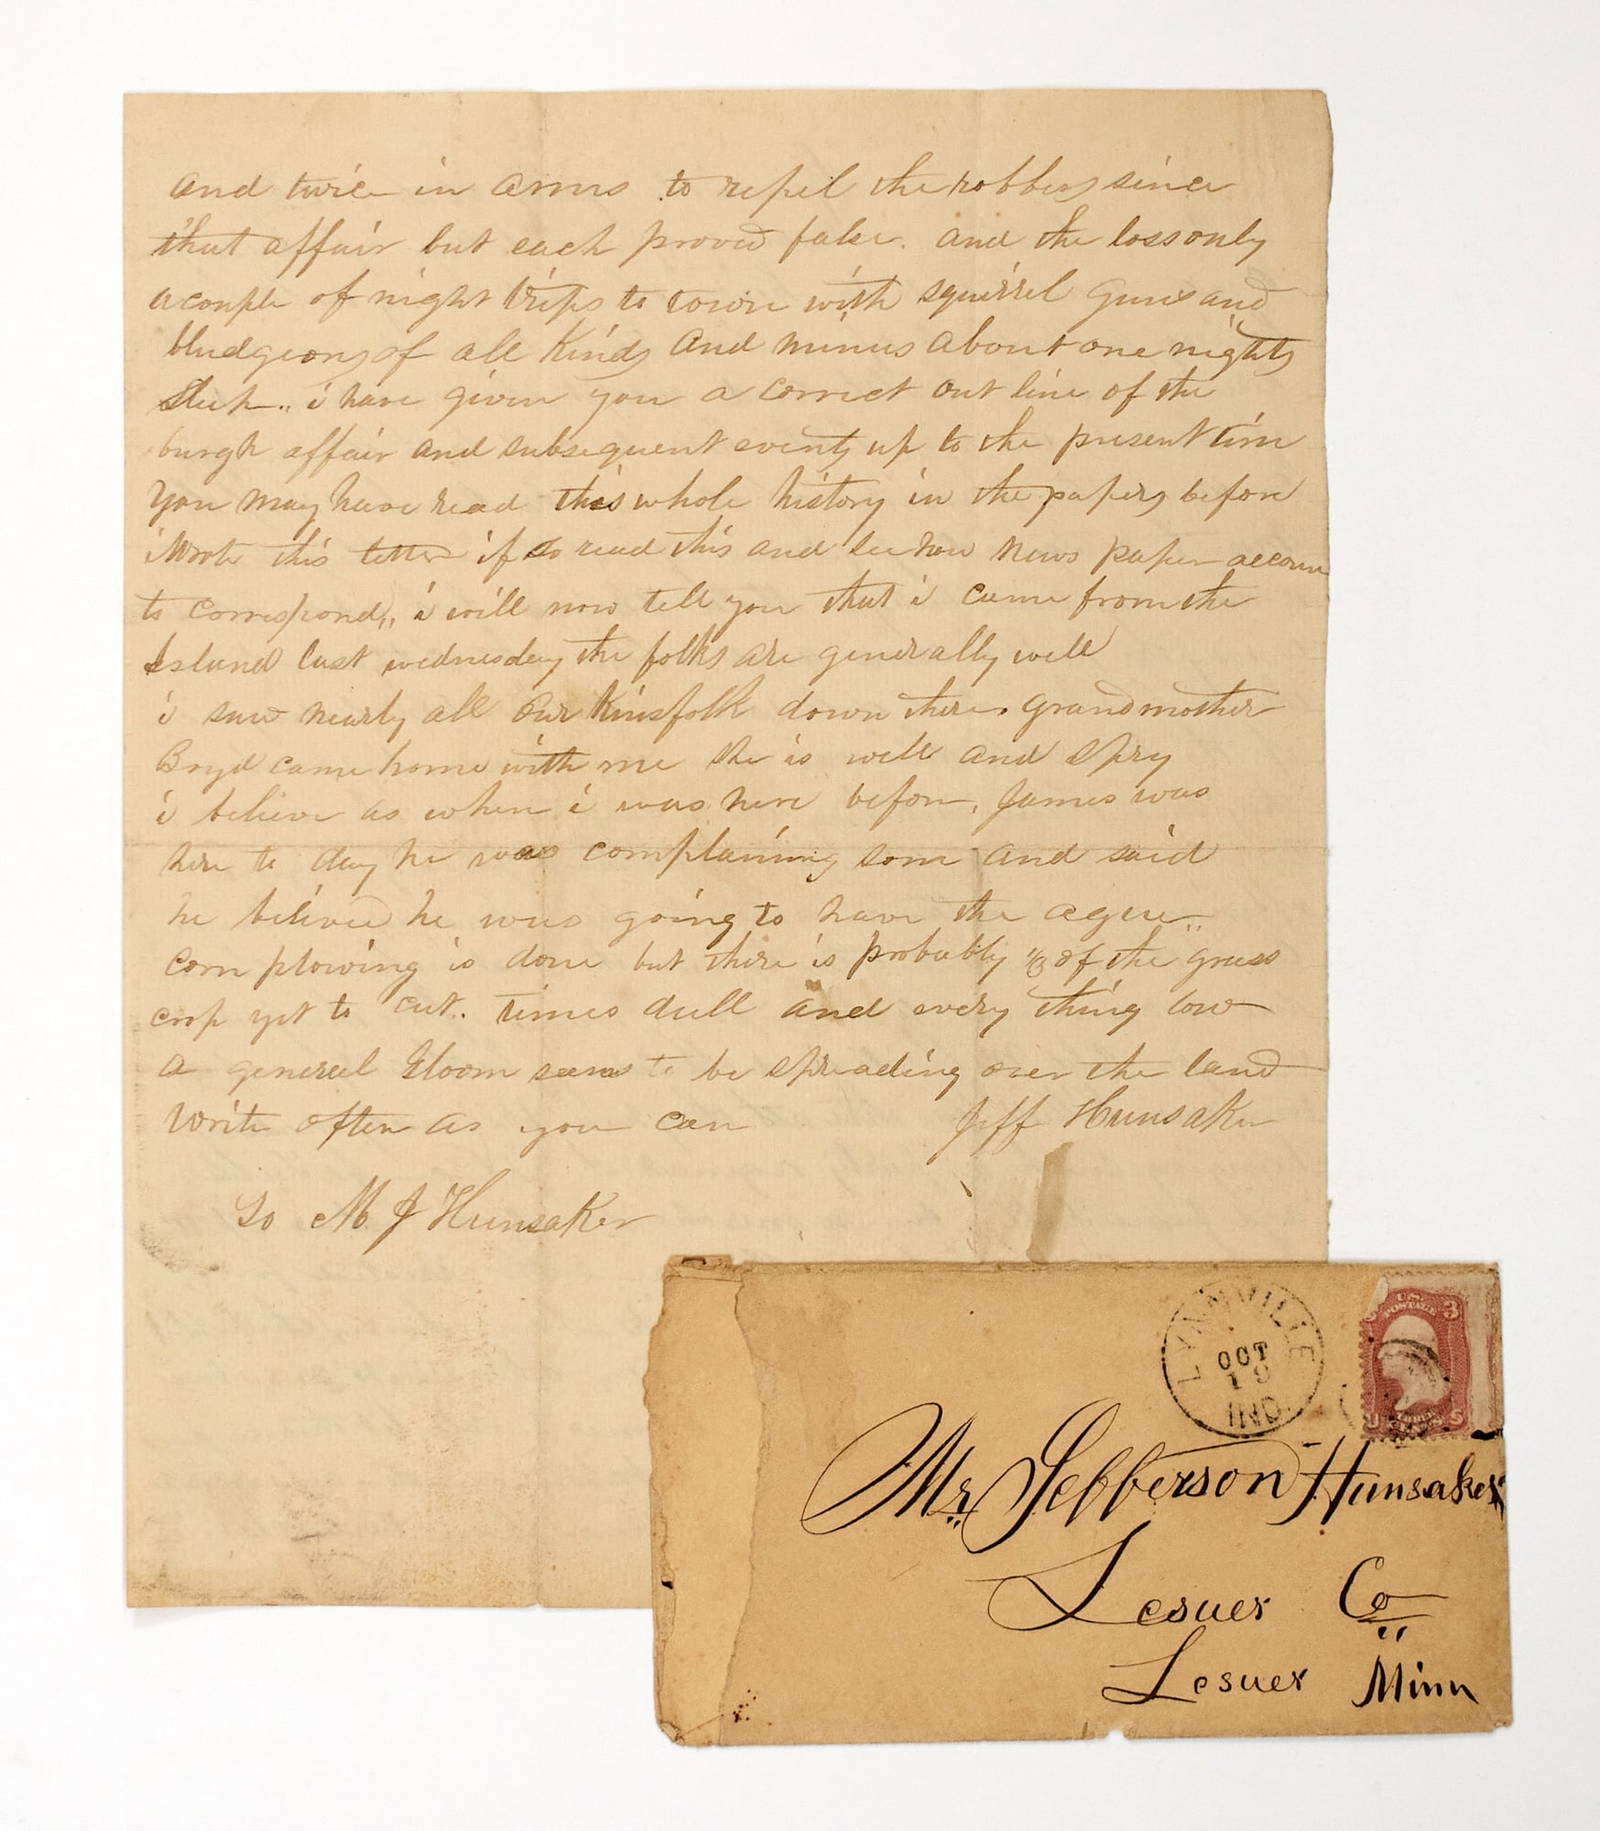 and twice in arms to repel the robbers since
that affair but each proved false. and the loss only
a couple of night trips to town with squirrel guns and
bludgeons of all kinds and minus about one nights
sleep.. i have given you a correct out line of the
burgh affair and subsequent events up to the present time
you may have read this whole history in the papers before
i wrote this letter if so read this and see how news paper accoun
ts correspond,, i will now tell you that i came from the
Island last wednesday the folks are generally well
i saw nearly all our kinsfolk down there. grandmother
Boyd came home with me she is well and spry
i believe as when i was here before, James was
here to day he was complaining som and said
he believed he was going to have the ague..
corn plowing is done but there is probably 1/3 of the grass
crop yet to cut. times dull and every thing low
a general gloom seems to be spreading over the land
write often as you can Jeff Hunsaker
To M J Hunsaker
LYNNVILLE
OCT
19
IND.
U.S. POSTAGE 3
U S
Mr Jefferson Hunsaker
Lesuer Co
Lesuer Minn